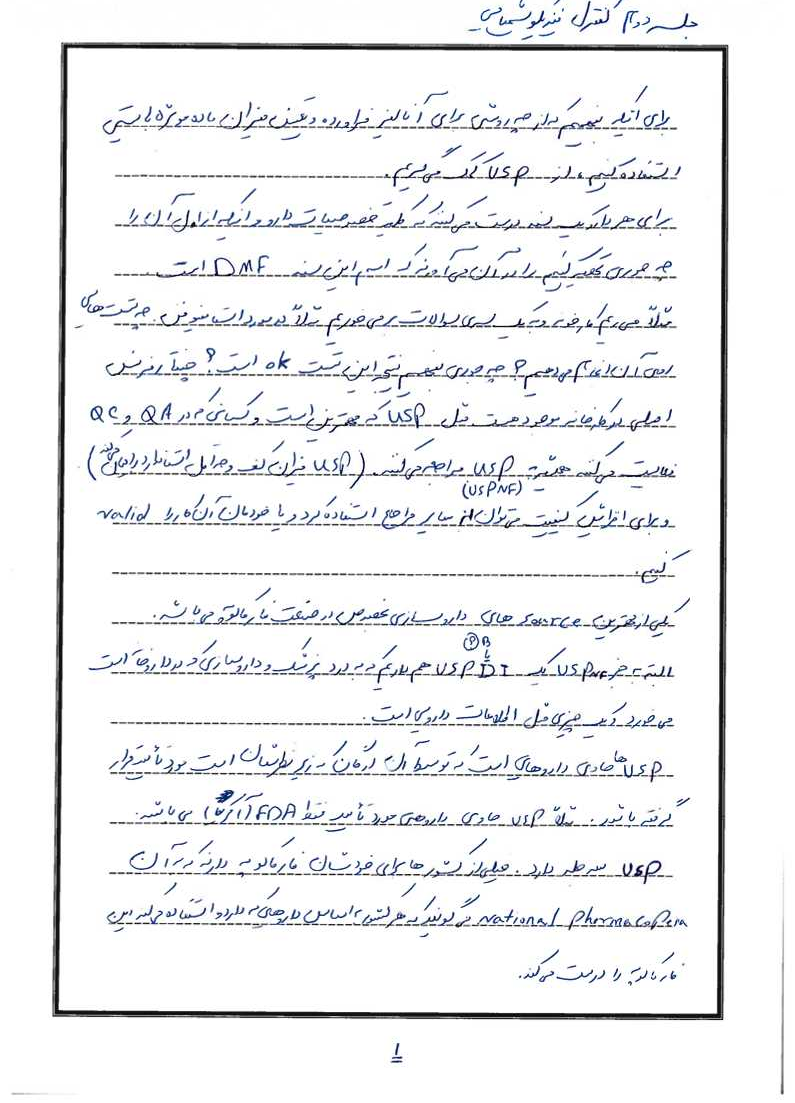 جلسه دوم کنترل فیزیکوشیمیایی
برای اینکه بفهمیم که از چه روشی برای آنالیز فرآورده و تعیین میزان ماده موثره بایستی
استفاده کنیم، از USP کمک می‌گیریم.
برای هر دارو یک سند درست می‌کنند که کلیه خصوصیات دارو و اینکه از اول آن را
چه جوری تحقیق کنیم را در آن می‌آورند که اسم این سند DMF است.
مثلاً می‌ریم کارخونه و به یک سری سوالات برمی‌خوریم مثلاً در مورد استامینوفن چه تست‌هایی
روی آن انجام می‌دهیم؟ چه جوری بفهمیم نتیجه این تست ok است؟ حتماً رفرنس
اصلی در کارخانه موجود هست مثل USP که بهترین است و کسانی که در QA و QC
فعالیت می‌کنند به USP مراجعه می‌کنند. (USP میزان کف و حداقل استاندارد را بیان می‌کند)
(USPNF)
و برای افزایش کیفیت می‌توان از سایر مراجع استفاده کرد و یا خودمان آن کار را valid
کنیم.
یکی از بهترین source های داروسازی بخصوص در صنعت فارماکوپه می‌باشد.
P B
البته به جز USPNF یک USP DI هم داریم که به درد پزشک و داروسازی که در داروخانه است
می‌خورد که یک چیزی مثل اطلاعات دارویی است.
USP ها حاوی داروهایی است که توسط آن ارگان که زیر نظرشان است مورد تأیید قرار
گرفته باشد. مثلاً USP حاوی داروهای مورد تأیید فقط FDA (آمریکا) می‌باشد.
USP سه جلد دارد. خیلی از کشورها برای خودشان فارماکوپه دارند که به آن
National pharmacopeia می‌گویند که هر کشور بر اساس داروهایی که دارد و استفاده می‌کند این
فارماکوپه را درست می‌کند.
1